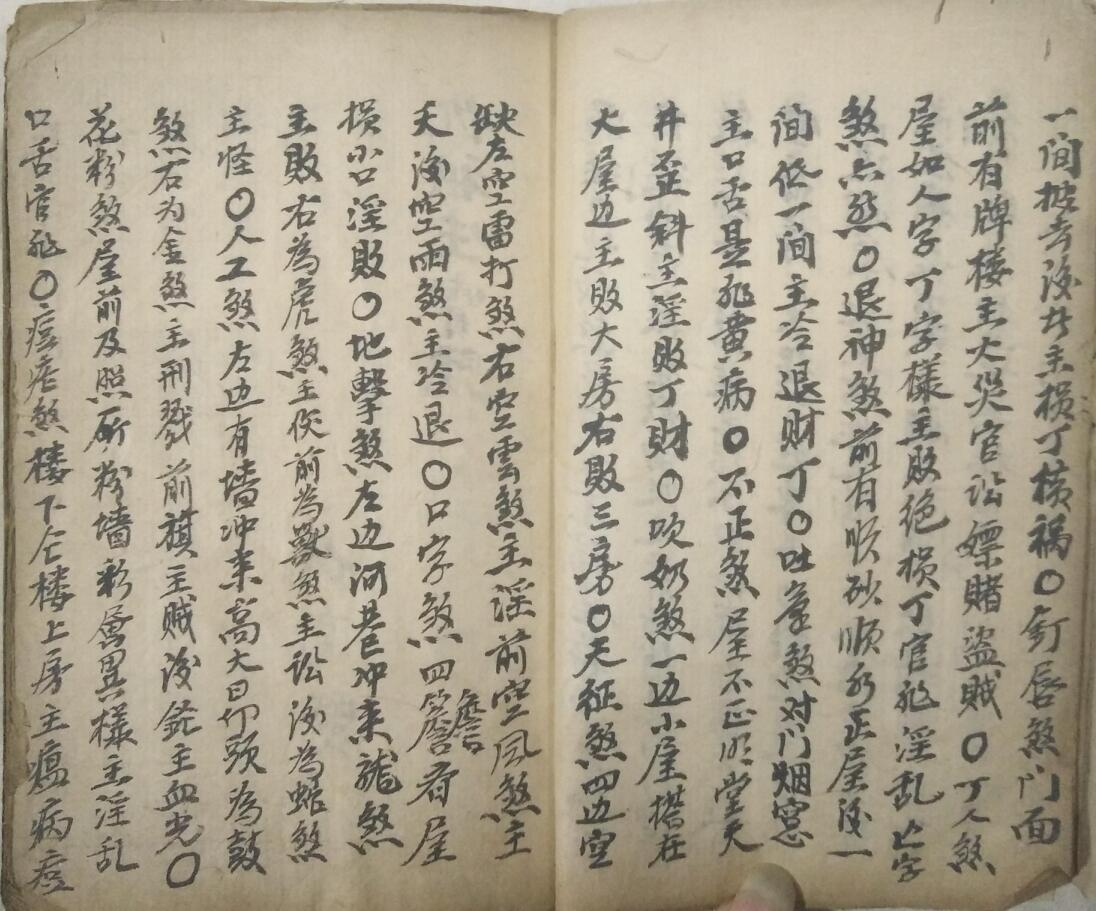 一间披去後井主损丁横祸〇釘唇煞门面
前有牌楼主火災官讼嫖賭盜贼〇丁人煞
屋如人字丁字樣主敗绝损丁官非淫乱亡字
煞点煞〇退神煞前有順砂順水正屋後一
间低一间主冷退财丁〇吐血煞对门烟窓
主口舌是非黄病〇不正煞屋不正明堂天
井歪斜主淫敗丁財〇吹奶煞一边小屋搭在
大屋边主敗大房右敗三房〇天征煞四边空
缺左空雷打煞右空雲煞主淫前空风煞主
夭後空雨煞主冷退〇口字煞四簷看屋
损小口淫敗〇地擊煞左边河巷冲来龍煞
主敗右為虎煞主伤前為獸煞主讼後為蛇煞
主怪〇人工煞左边有墙冲来高大曰仰頭為鼓
煞右为金煞主刑戮前旗主贼後主血光〇
花粉煞屋前及照所粉墙彩畫異樣主淫乱
口舌官非〇煞楼下仝楼上房主瘟病